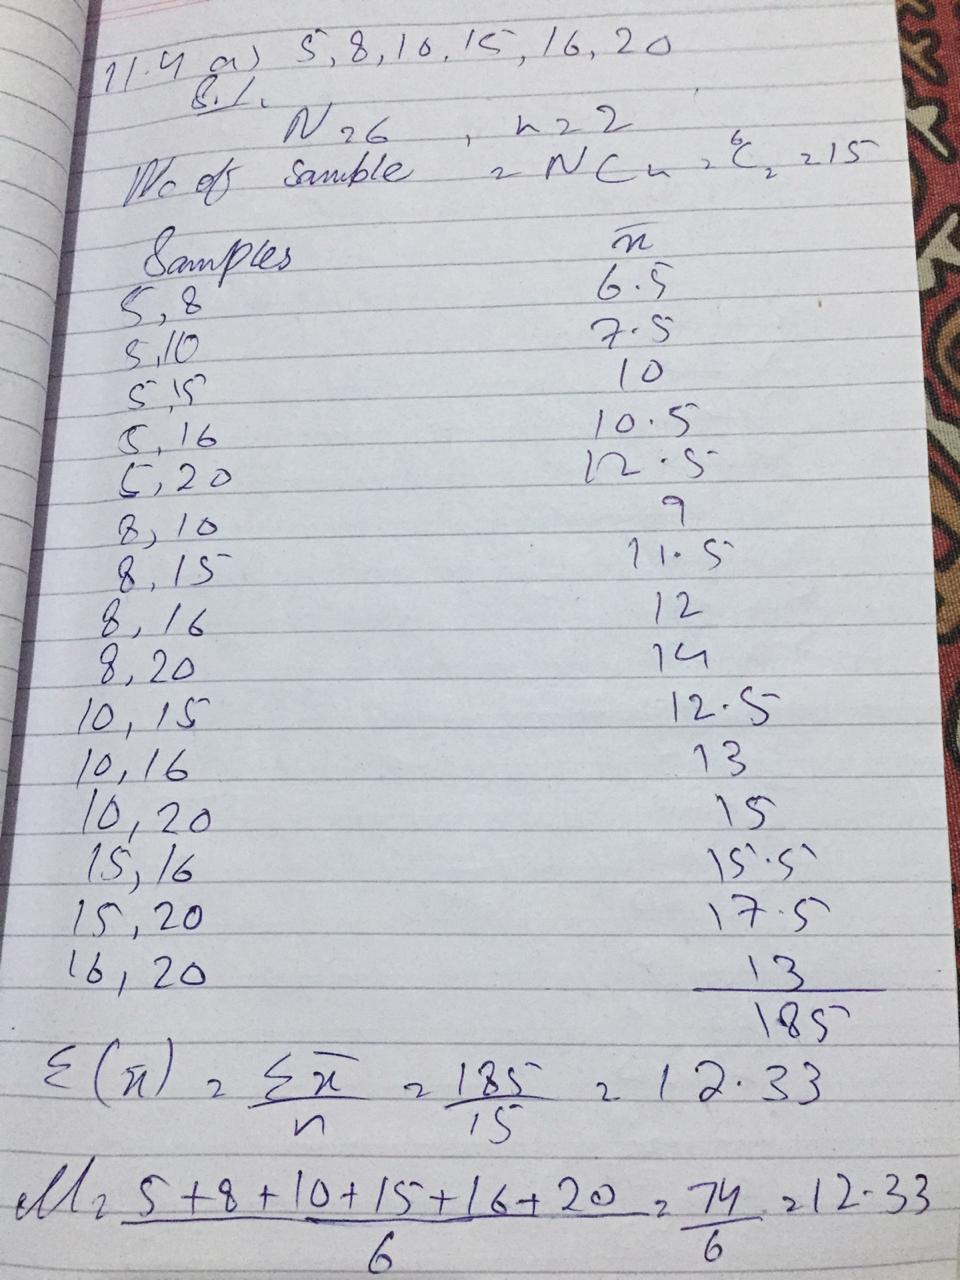 11.4 a) 5, 8, 10, 15, 16, 20
Sol.
N = 6 , n = 2
No of sample = NCn = ⁶C₂ = 15
Samples x̄
5, 8 6.5
5, 10 7.5
5, 15 10
5, 16 10.5
5, 20 12.5
8, 10 9
8, 15 11.5
8, 16 12
8, 20 14
10, 15 12.5
10, 16 13
10, 20 15
15, 16 15.5
15, 20 17.5
16, 20 13
185
E(x̄) = Σx̄/n = 185/15 = 12.33
M = 5+8+10+15+16+20/6 = 74/6 = 12.33